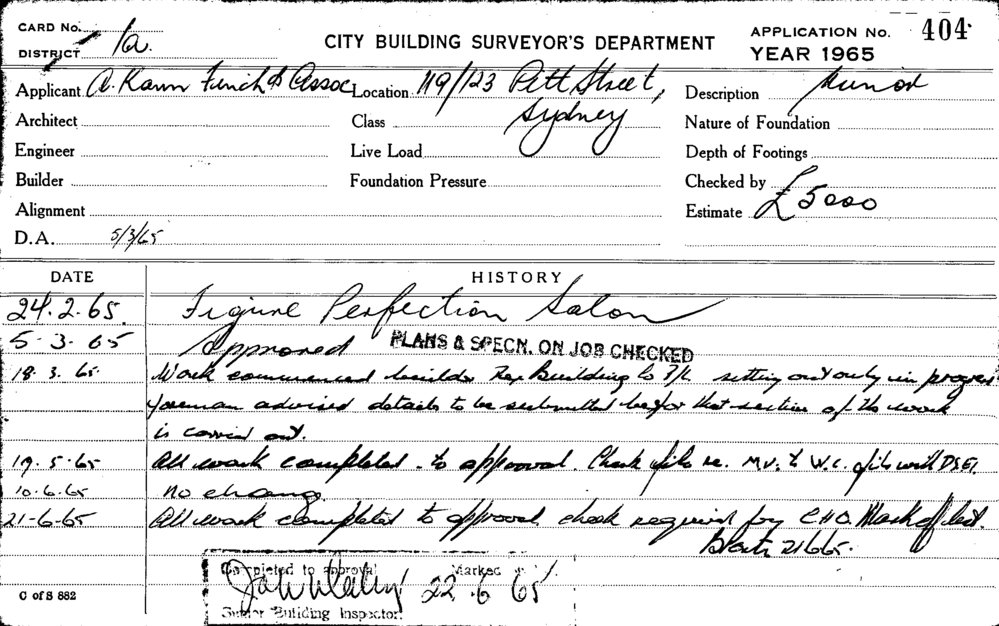 CARD No.
DISTRICT 1a.
CITY BUILDING SURVEYOR'S DEPARTMENT
APPLICATION No. 404
YEAR 1965
Applicant A. Kann Finch & Assoc
Location 119/123 Pitt Street,
Sydney
Description Minor
Architect
Class
Nature of Foundation
Engineer
Live Load
Depth of Footings
Builder
Foundation Pressure
Checked by
Alignment
Estimate £5000
D.A. 5/3/65
DATE HISTORY
24.2.65. Figure Perfection Salon
5.3.65 Approved PLANS & SPECN. ON JOB CHECKED
18.3.65 Work commenced builder Rex Building Co P/L setting out only in progress
foreman advised details to be submitted before that section of the work
is carried out.
19.5.65 All work completed to approval. Check file re. M.V. to W.C. file with
10.6.65 No change.
21-6-65 All work completed to approval check required by C.H.O. Mark off
21665.
Completed to approval Marked
22.6.65
Senior Building Inspector.
C of S 882